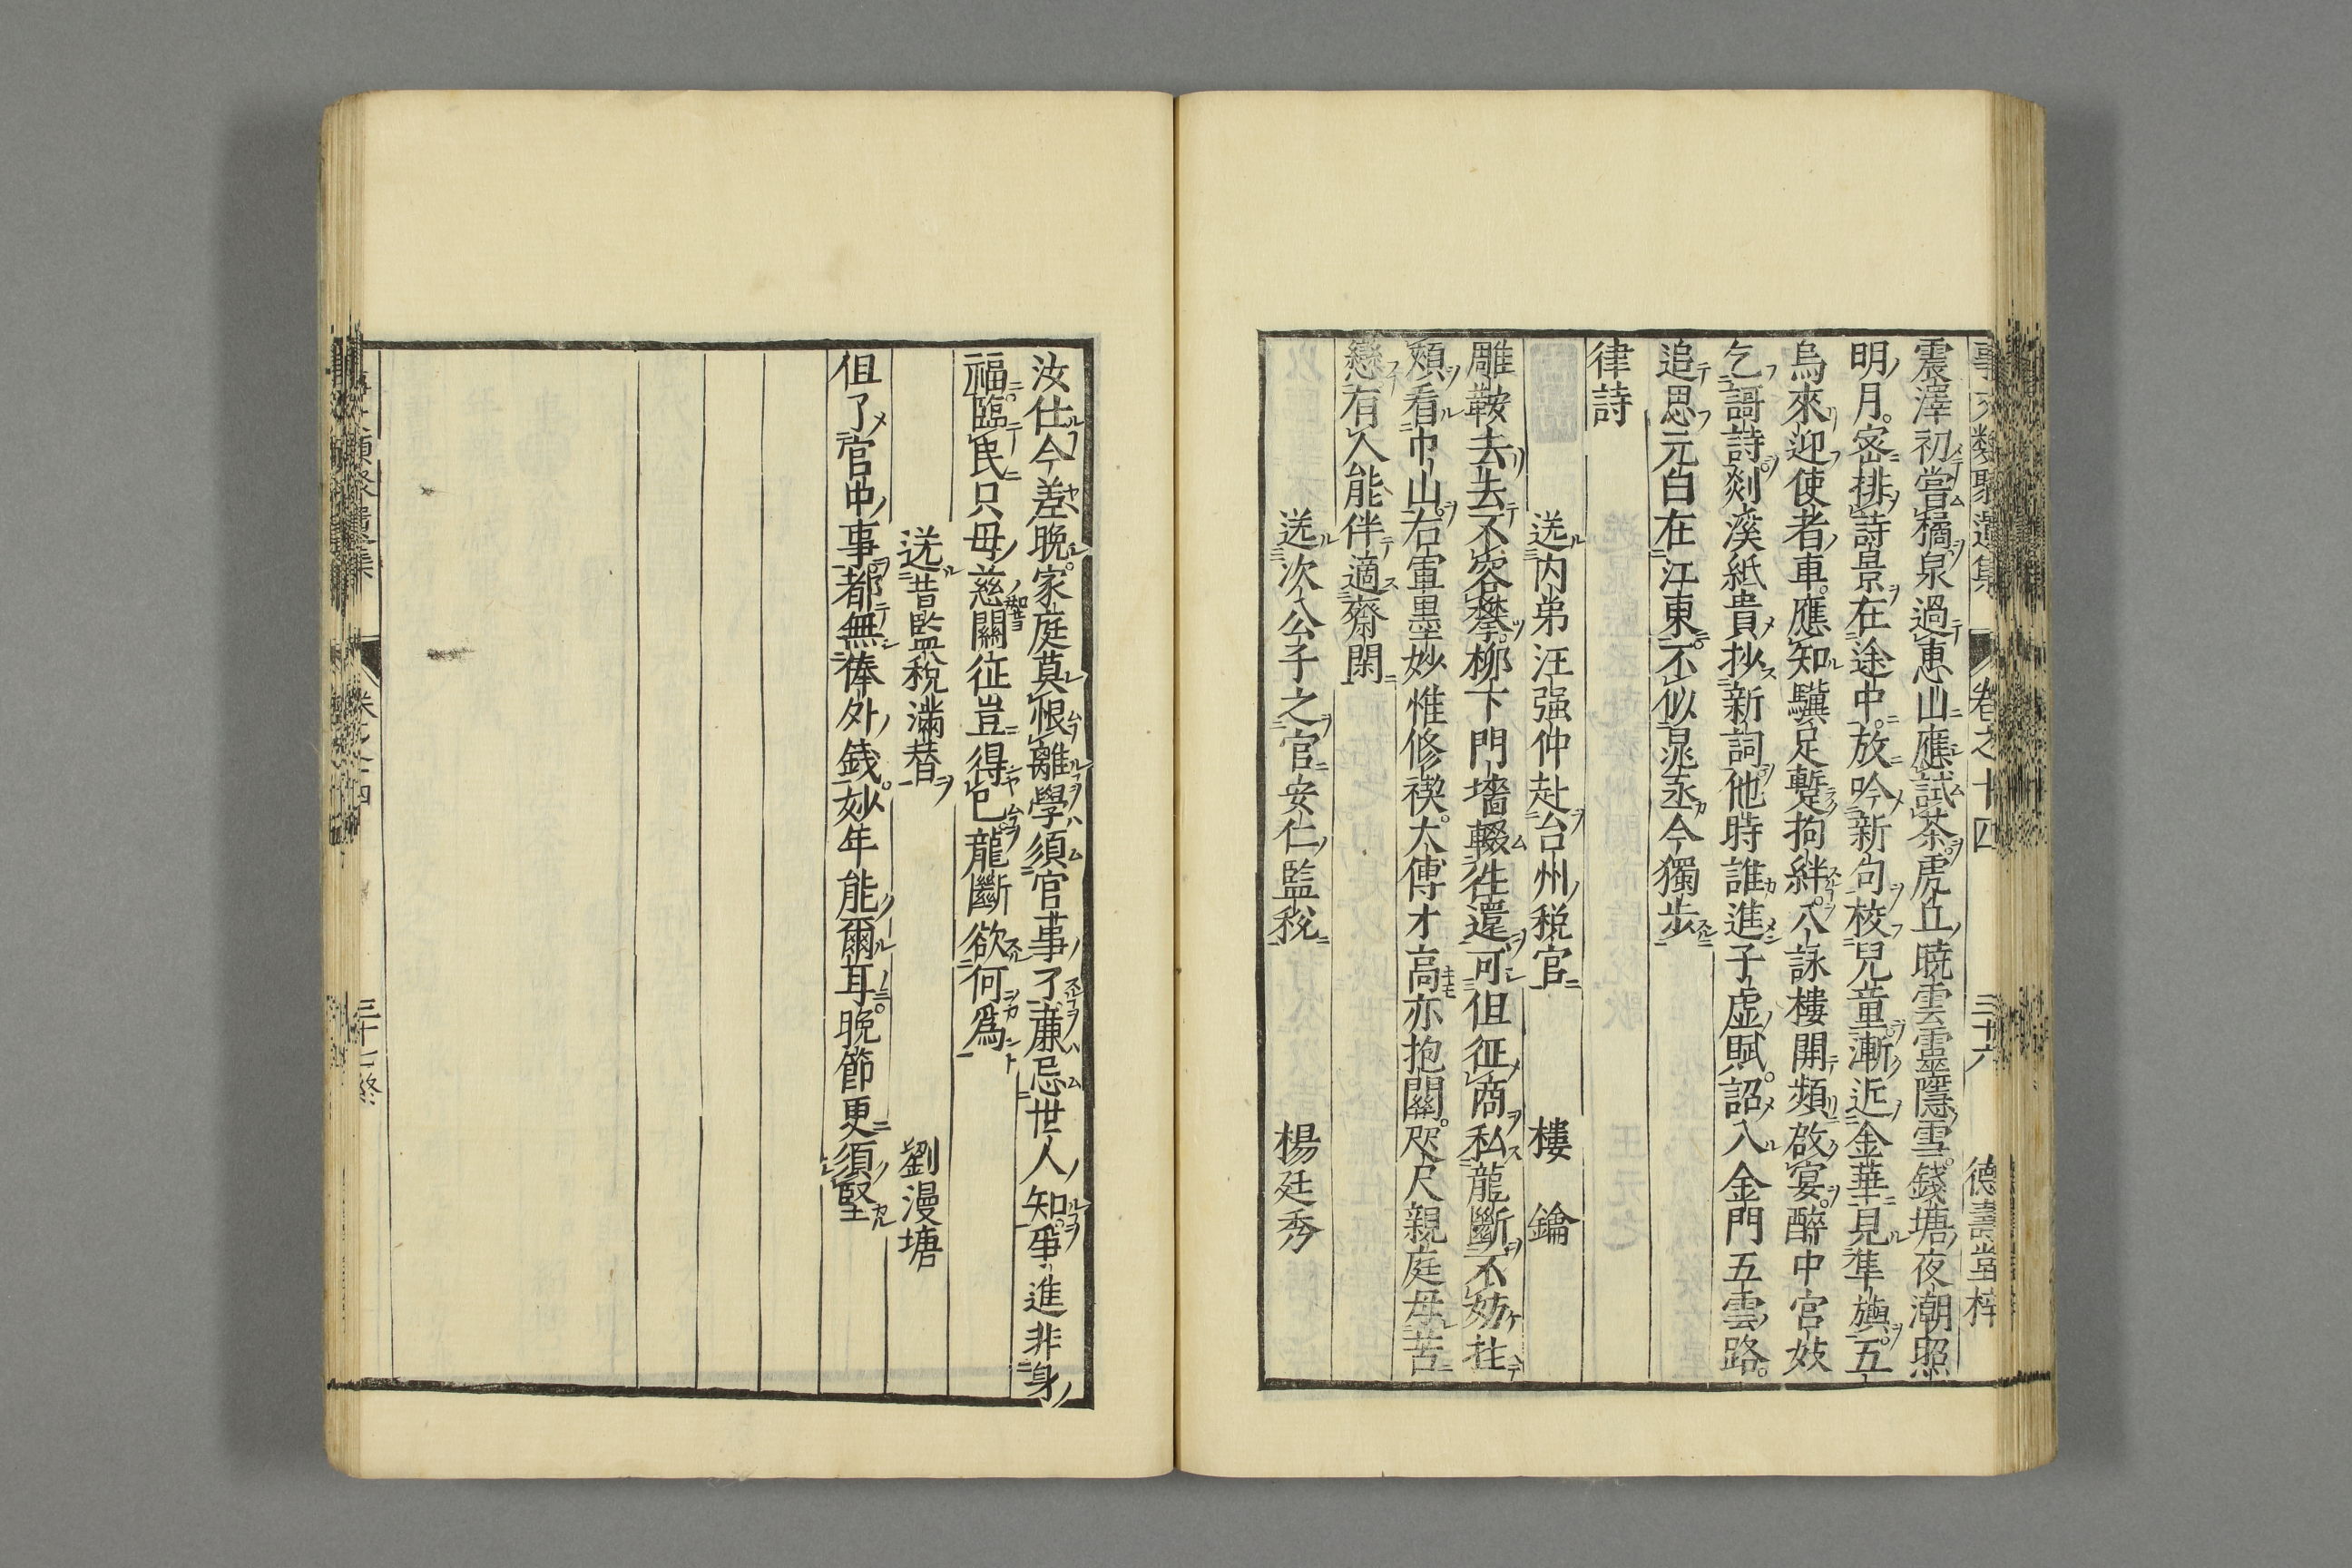 事文類聚遺集 卷之十四 三十六 德壽堂梓
震澤初嘗橘泉過惠山應試茶虎丘曉雲靈隱雪錢塘夜潮照
明月密排詩景在途中放吟新句校兒童漸近金華見隼旟五
烏來迎使者車應知驥足蹔拘絆八詠樓開頻啟宴醉中官妓
乞謌詩剡溪紙貴抄新詞他時誰進子虛賦詔入金門五雲路
追思元白在江東不似晁丞今獨步
律詩
送内弟汪强仲赴台州稅官 樓鑰
雕鞍去去不容攀栁下門墻輟徃還可但征商私龍斷不妨拄
頰看巾山右軍墨妙惟修禊太傅才高亦抱關咫尺親庭毋苦
戀有人能伴適齋閑
送次公子之官安仁監稅 楊廷秀
汝仕今差晚家庭莫恨離學須官事了廉忌世人知爭進非身
福臨民只母慈關征豈得已龍斷欲何爲
送昔監稅滿替 劉漫塘
但了官中事都無俸外錢妙年能爾耳晚節更須堅
類聚遺集 卷之十四 三十七終